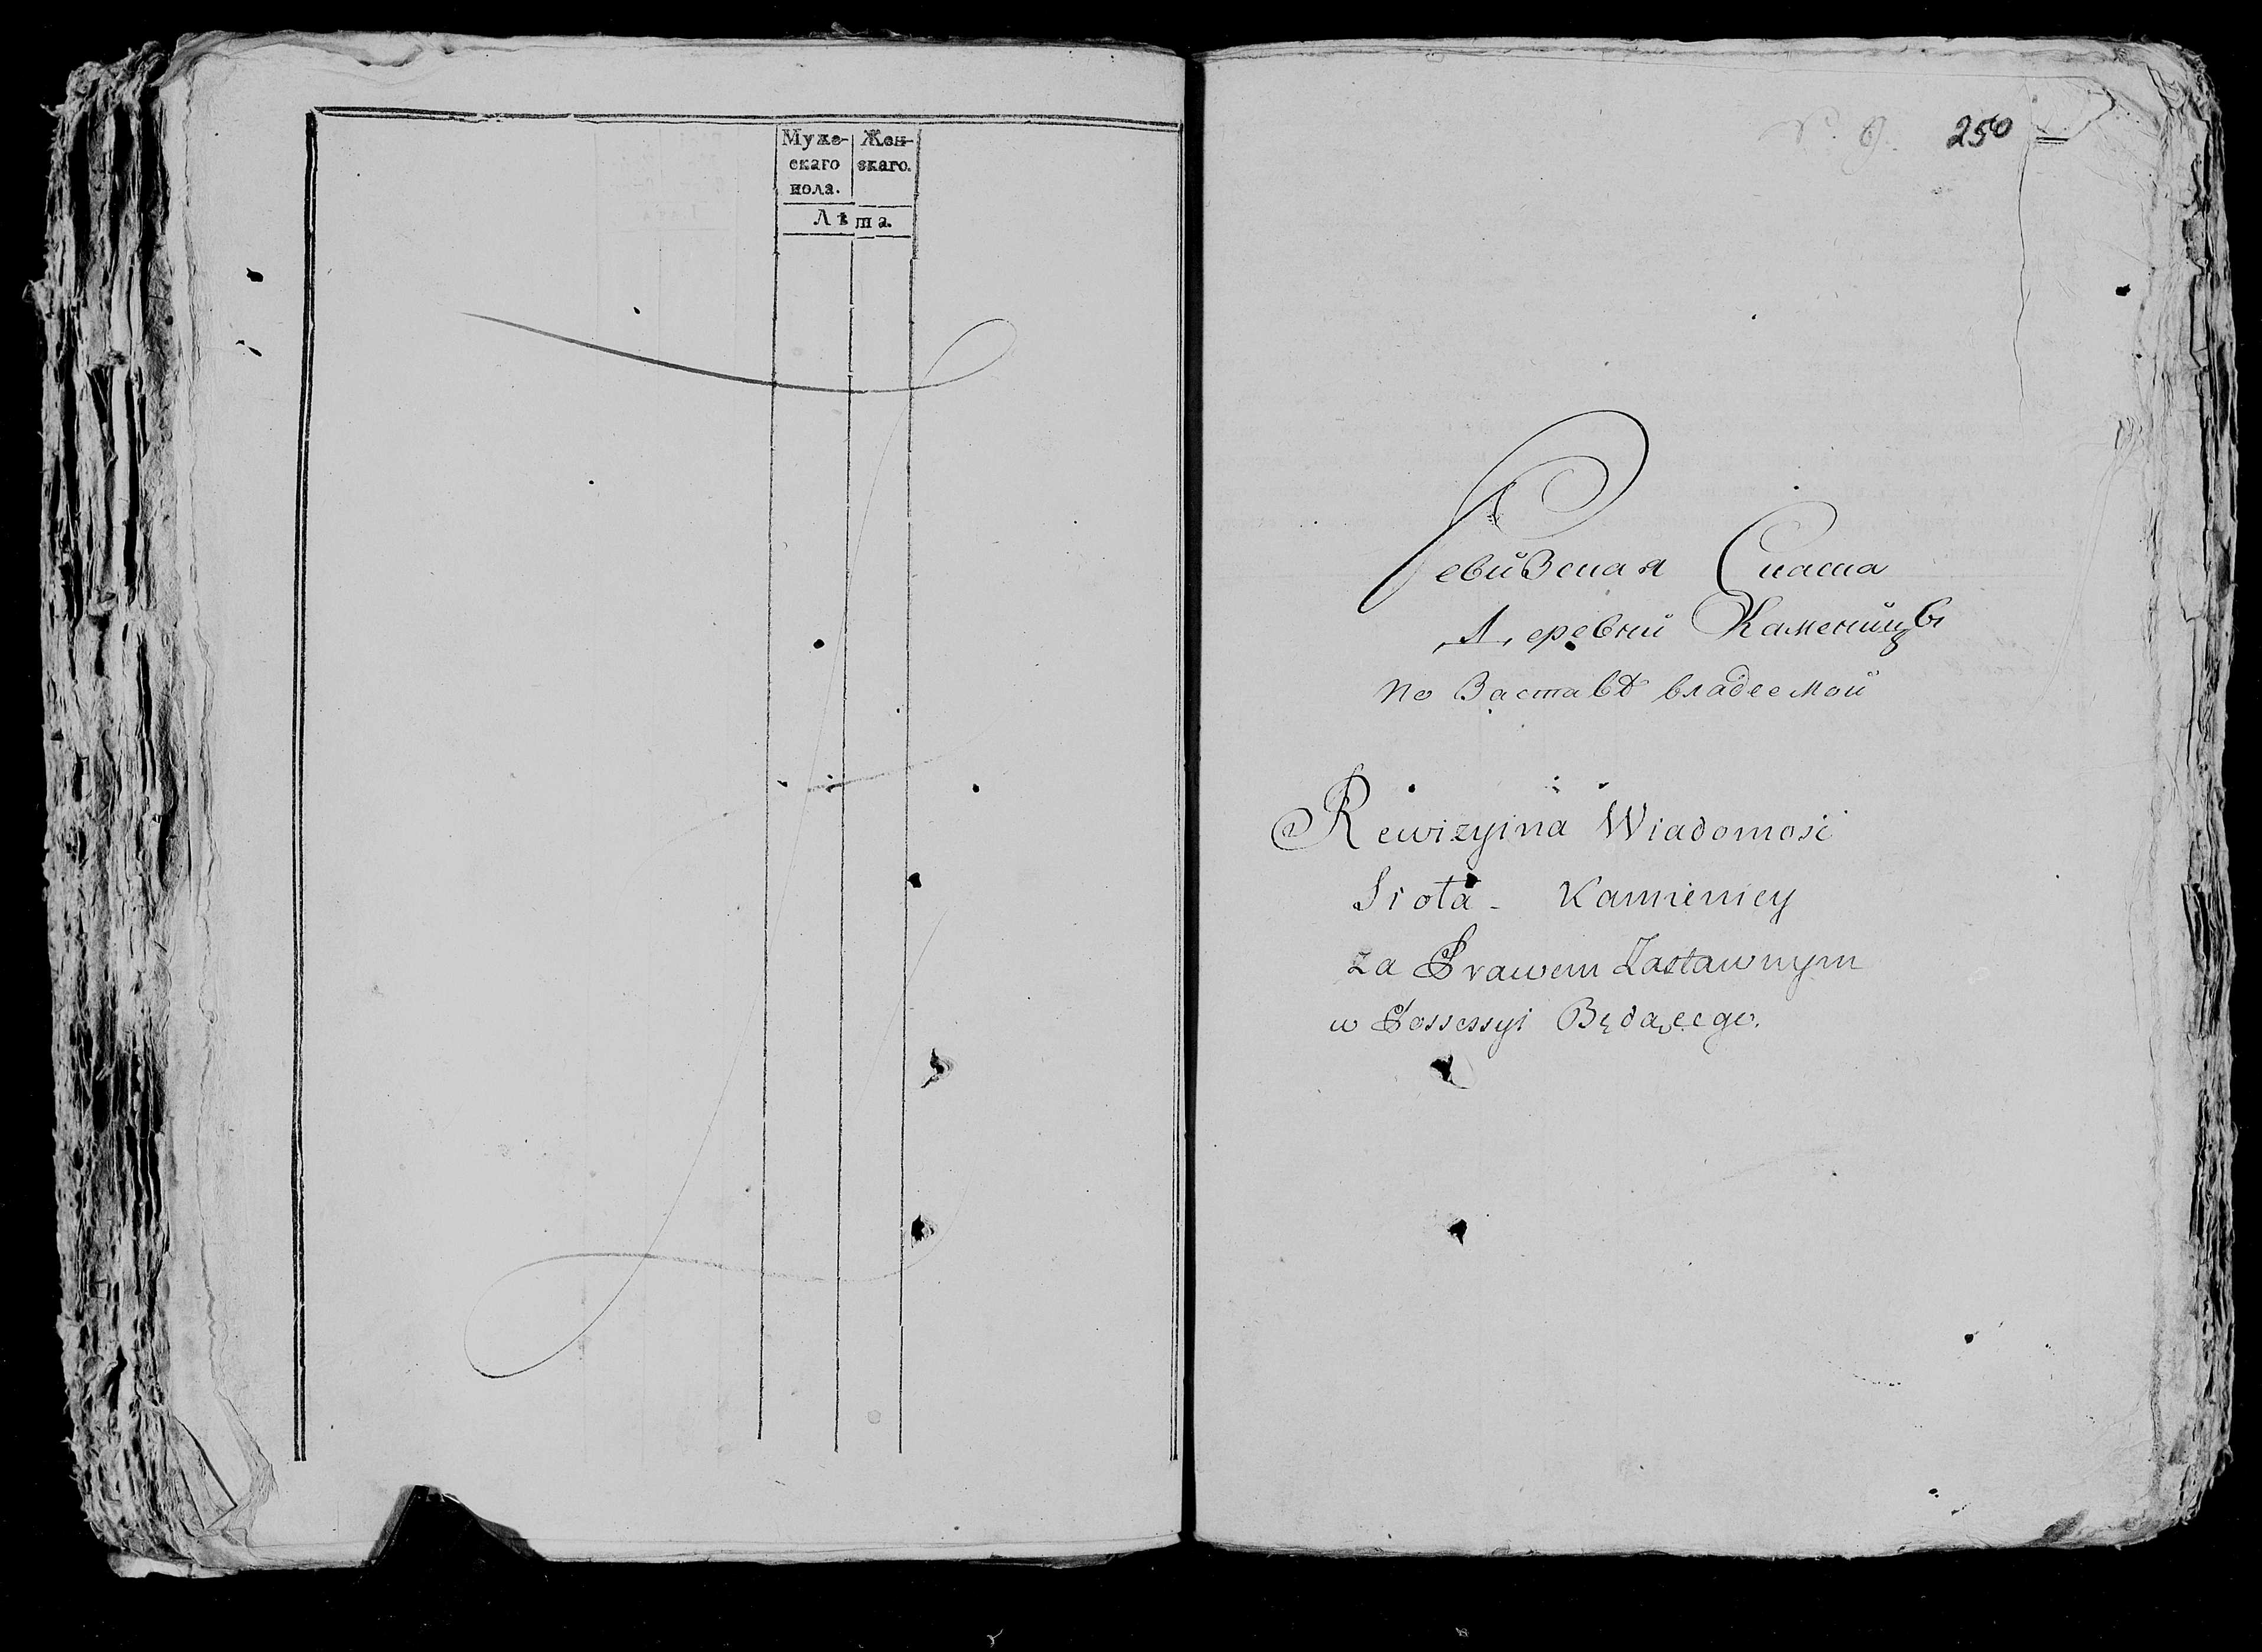 Муже- Жен-
скаго скаго.
пола.
Лѣта.
N. 9. 250
Ревизская Сказка
Деревни Каменицы
по Заставѣ владеемой
Rewizyina Wiadomość
Sioła - Kamienicy
za Prawem Zastawnym
w Possessyi Będącego.